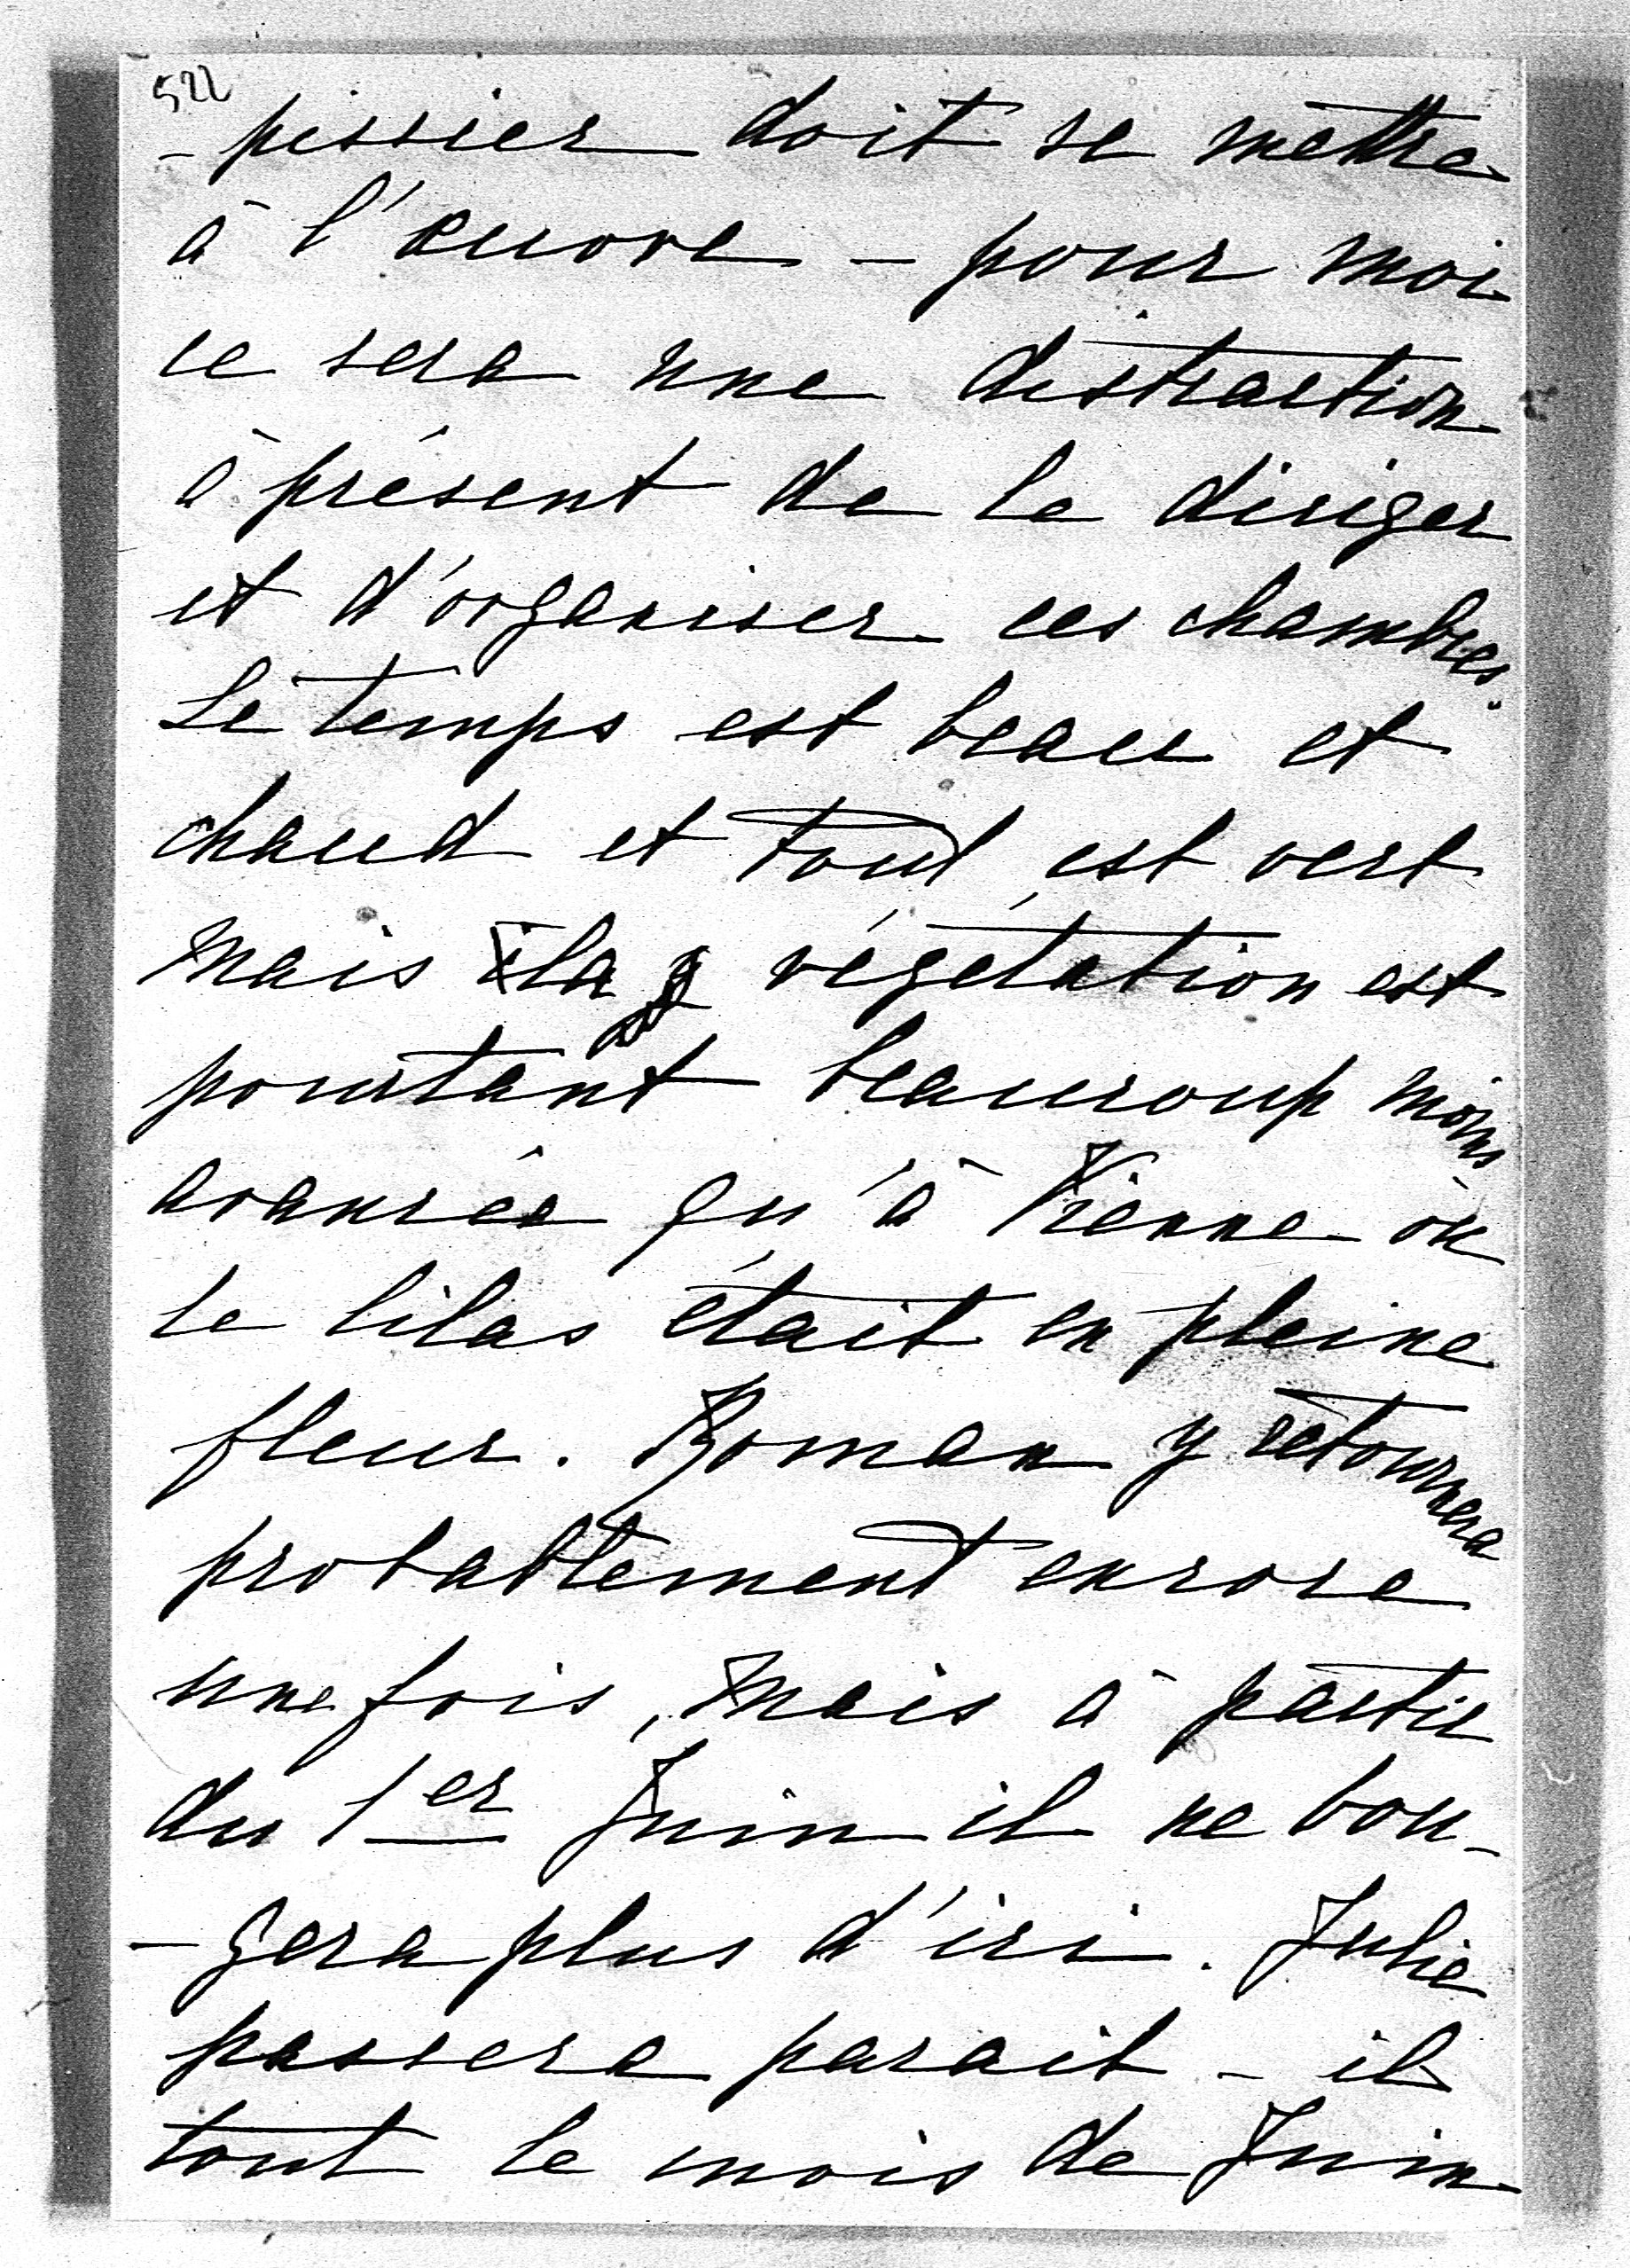 522
-pissier doit se mettre
à l'œuvre - pour moi
ce sera une distraction
à présent de le diriger
et d'organiser ces chambres.
Le temps est beau et
chaud et tout est vert
mais la végétation est
pourtant beaucoup moins
avancée qu'à Vienne où
le lilas était en pleine
fleur. Roman y retournera
probablement encore
une fois, mais à partir
du 1er Juin il ne bou-
-gera plus d'ici. Julie
passera parait-il
tout le mois de Juin